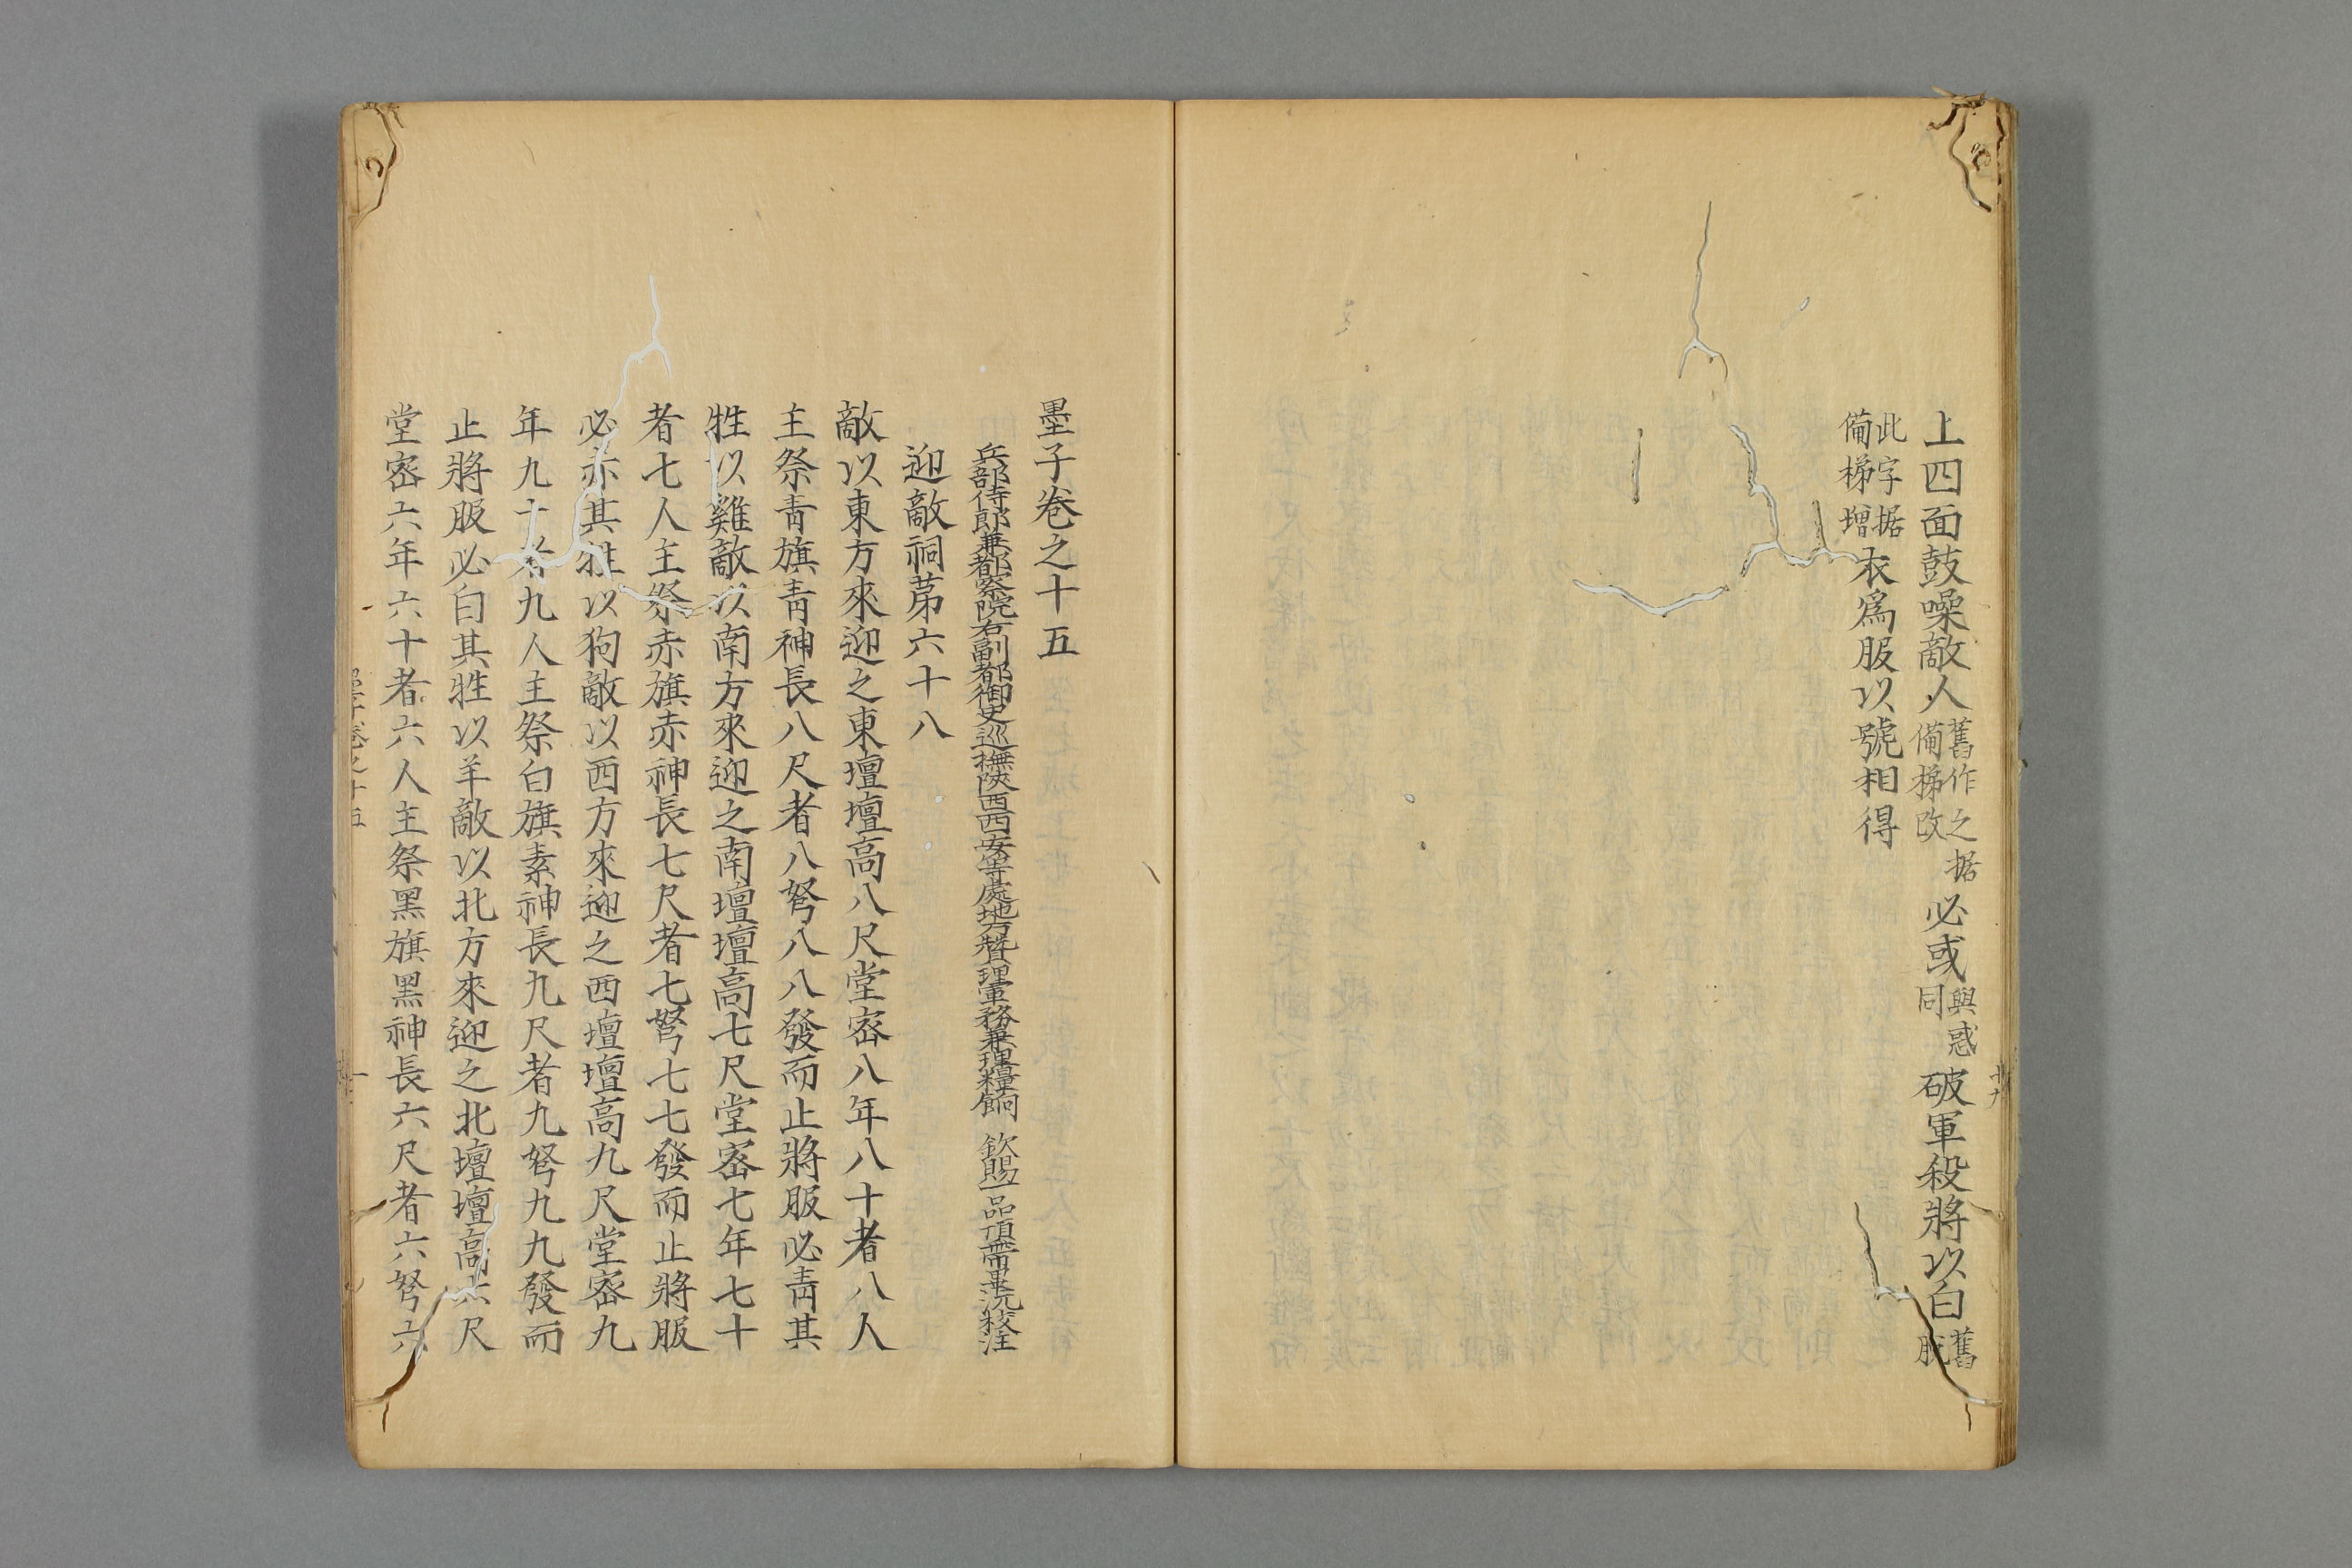 上四面鼓噪敵人舊作之据備梯改必或與惑同破軍殺將以白舊脫
此字据備梯增衣爲服以號相得
墨子卷之十五
兵部侍郎兼都察院右副都御史巡撫陝西西安等處地方贊理軍務兼理糧餉 欽賜一品頂帶畢沅校注
迎敵祠苐六十八
敵以東方來迎之東壇壇高八尺堂宻八年八十者八人
主祭青旗青神長八尺者八弩八八發而止將服必青其
牲以雞敵以南方來迎之南壇壇高七尺堂宻七年七十
者七人主祭赤旗赤神長七尺者七弩七七發而止將服
必赤其牲以狗敵以西方來迎之西壇壇高九尺堂宻九
年九十者九人主祭白旗素神長九尺者九弩九九發而
止將服必白其牲以羊敵以北方來迎之北壇壇高六尺
堂宻六年六十者六人主祭黑旗黑神長六尺者六弩六
墨子卷之十五
一